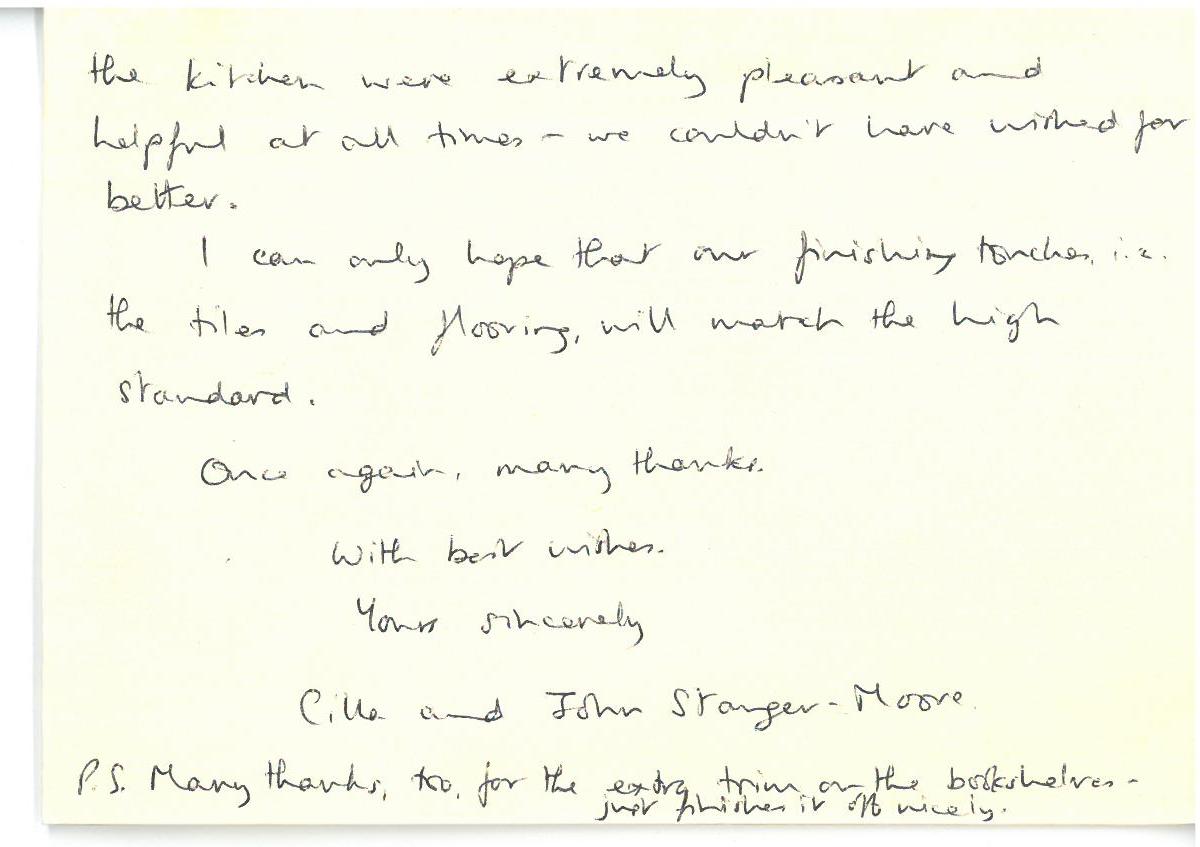 the kitchen were extremely pleasant and
helpful at all times - we couldn't have wished for
better.
I can only hope that our finishing touches, i.e.
the tiles and flooring, will match the high
standard.
Once again, many thanks.
With best wishes.
Yours sincerely
Cilla and John Stanger-Moore.
P.S. Many thanks, too, for the extra trim on the bookshelves -
just finishes it off nicely.